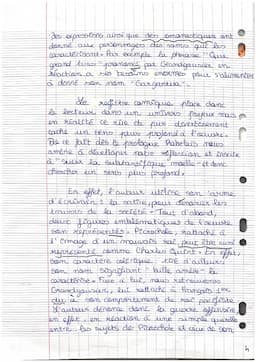 des expressions ainsi que des onomastiques ont
donné aux personnages des noms qui les
caractérisent. Par exemple la phrase "Que
grand tu as" prononcée par Grandgousier en
réaction à ses besoins énormes pour s'alimenter
a donné son nom "Gargantua".
Le registre comique place donc
le lecteur dans un univers joyeux mais
en réalité ce rire de pur divertissement
cache un sens plus profond à l'œuvre.
De ce fait dès le prologue Rabelais nous
amène à développer notre réflexion et invite
à "sucer la substantifique moelle" et donc
chercher un sens plus profond.
En effet, l'auteur utilise son arme
d'écrivain : la satire, pour dénoncer les
travers de la société. Tout d'abord,
deux figures emblématiques de l'œuvre
sont représentées : Picrochole, rattaché à
l'image d'un mauvais roi, peut être aussi
représenté comme Charles Quint. En effet,
son caractère colérique
son nom signifiant "bile amère" le
caractérise. Face à lui, nous retrouvons
Grandgousier, lui rattaché à François 1er
du à son comportement de roi pacifiste.
L'auteur dénonce donc la guerre offensive
en effet, en réaction à une simple querelle
entre les sujets de Picrochole et ceux de son
4